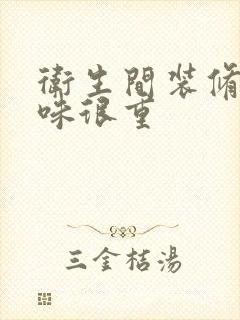 衛生間裝修
味很重
三金桔湯